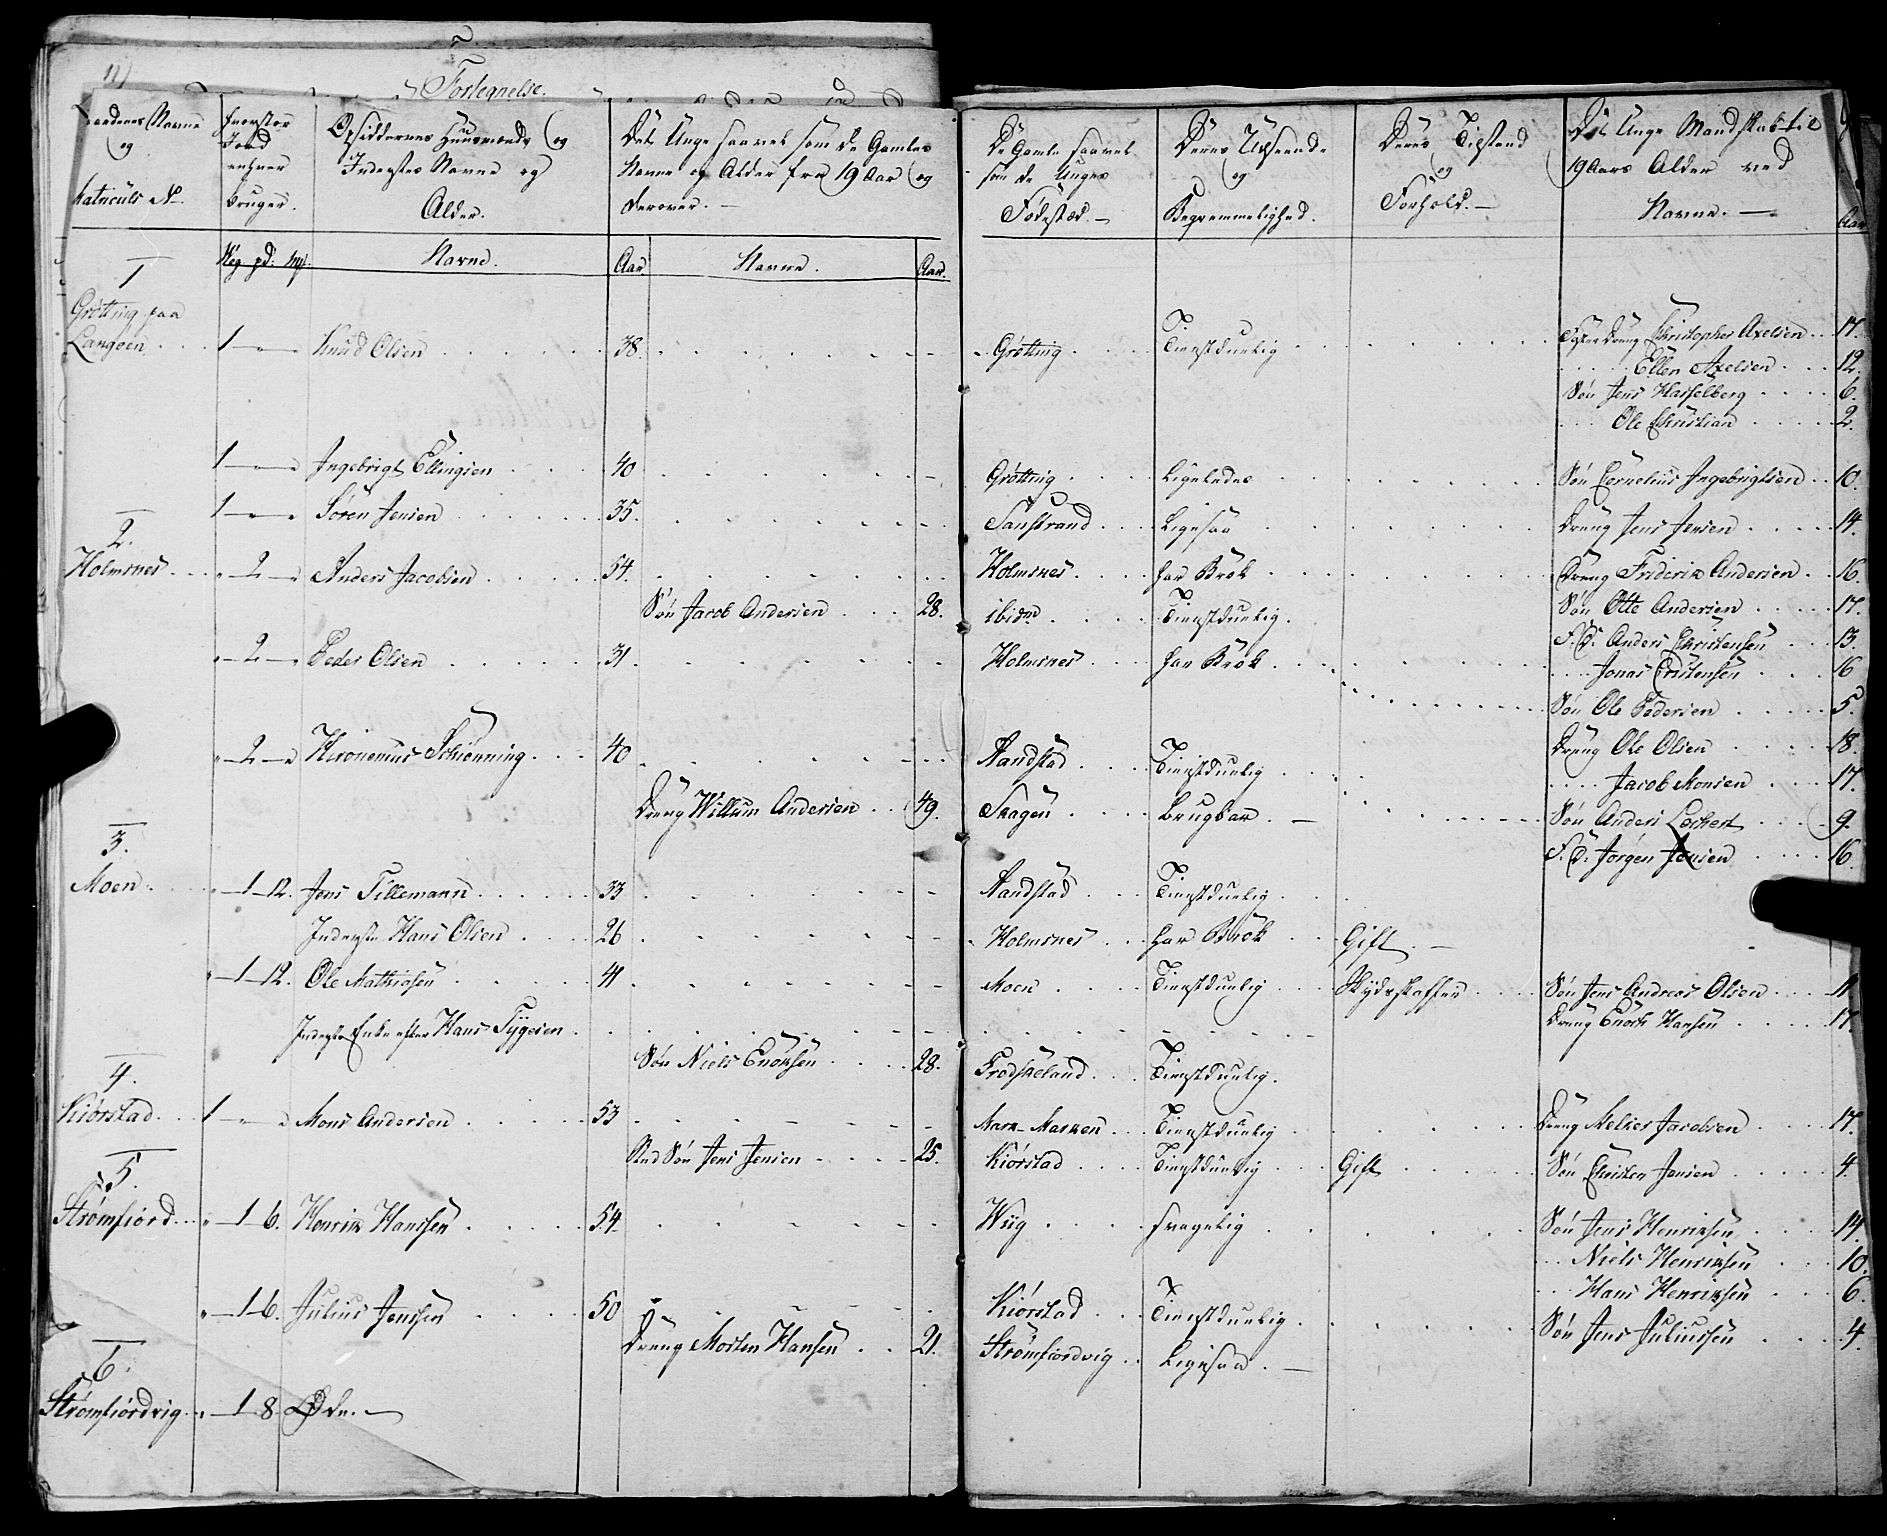 11)
Fortegnelse.
Gaardenes Navne og Matriculs No
hvorstor Jord enhver bruger.
Opsiddernes Huusmænds og Inderstes Navne og Alder.
Det Unge saavel som de Gamles Navne og Alder fra 19 Aar og derover. —
De Gamle saavel som de Unges Fødested —
Deres Udseende og Beqvemmelighed.
Deres Tilstand og Forhold. —
Det Unge Mandskab til 19 Aars Alder ved Navne. —
Aar
Wog pd: Mk. Navne. Aar Navne. Aar.
1
Grötting paa
Langöen 1 — Knud Olsen 38. Grötting Tienstduelig Foster Dreng Christopher Axelsen 17.
Ellen Axelsen 12.
Søn Jens Hasselberg 6.
Ole Christian 2.
1 — Ingebrigt Ellingsen 40 Grötting Ligeledes Søn Cornelius Ingebrigtsen 10.
1 — Sören Jensen 35. Sanstrand Ligesaa Dreng Jens Jensen 14.
2.
Holmsnes 2 — Anders Jacobsen 54. Holmsnes har Brok Dreng Friderik Andersen 16.
Søn Jacob Andersen 28. ibidm Tienstduelig. Søn Otte Andersen 17.
2 — Peder Olsen 31 Holmsnes har Brok F. D. Anders Christensen 13.
Jonas Cristensen 16
Søn Ole Pedersen 5.
2 — Hironemus Schiønning 40 Sandstad Tienstduelig Dreng Ole Olsen 18.
Jacob Monsen 17.
Dreng Willum Andersen 49. Skagen Brugbar. — Søn Anders Lockert 9.
F. D. Jørgen Jensen 16.
3.
Moen 1 12. Jens Tillemann 33 Sandstad Tienstduelig
Inderste Hans Olsen 26 Holmsnes har Brok Gift. —
1 12. Ole Mathiasen 41 Moen Tienstduelig Skydsskaffer Søn Jens Andreas Olsen 11.
Inderste Enke efter Hans Tygesen Dreng Enoch Hansen 17.
Søn Niels Enoksen 28. Frodskeland Tienstduelig.
4.
Kiørstad 1 — Mons Andersen 53 Mark Marken Tienstduelig Dreng Melkier Jacobsen 17.
Sted Søn Jens Jensen 25. Kiørstad Tienstduelig Gift Søn Christen Jensen 4.
5.
Strømfiord 1 6. Henrik Hanssen 54. Wiig svagelig Søn Jens Henriksen 14.
Niels Henriksen 10.
Hans Henriksen 6.
1 6. Julius Jenssen 50 Kiørstad Tienstduelig Søn Jens Juliussen 4.
Dreng Morten Hansen 21. Strømfiordvig Ligesaa. —
6.
Strømfiordvig 1 8 Øde. —